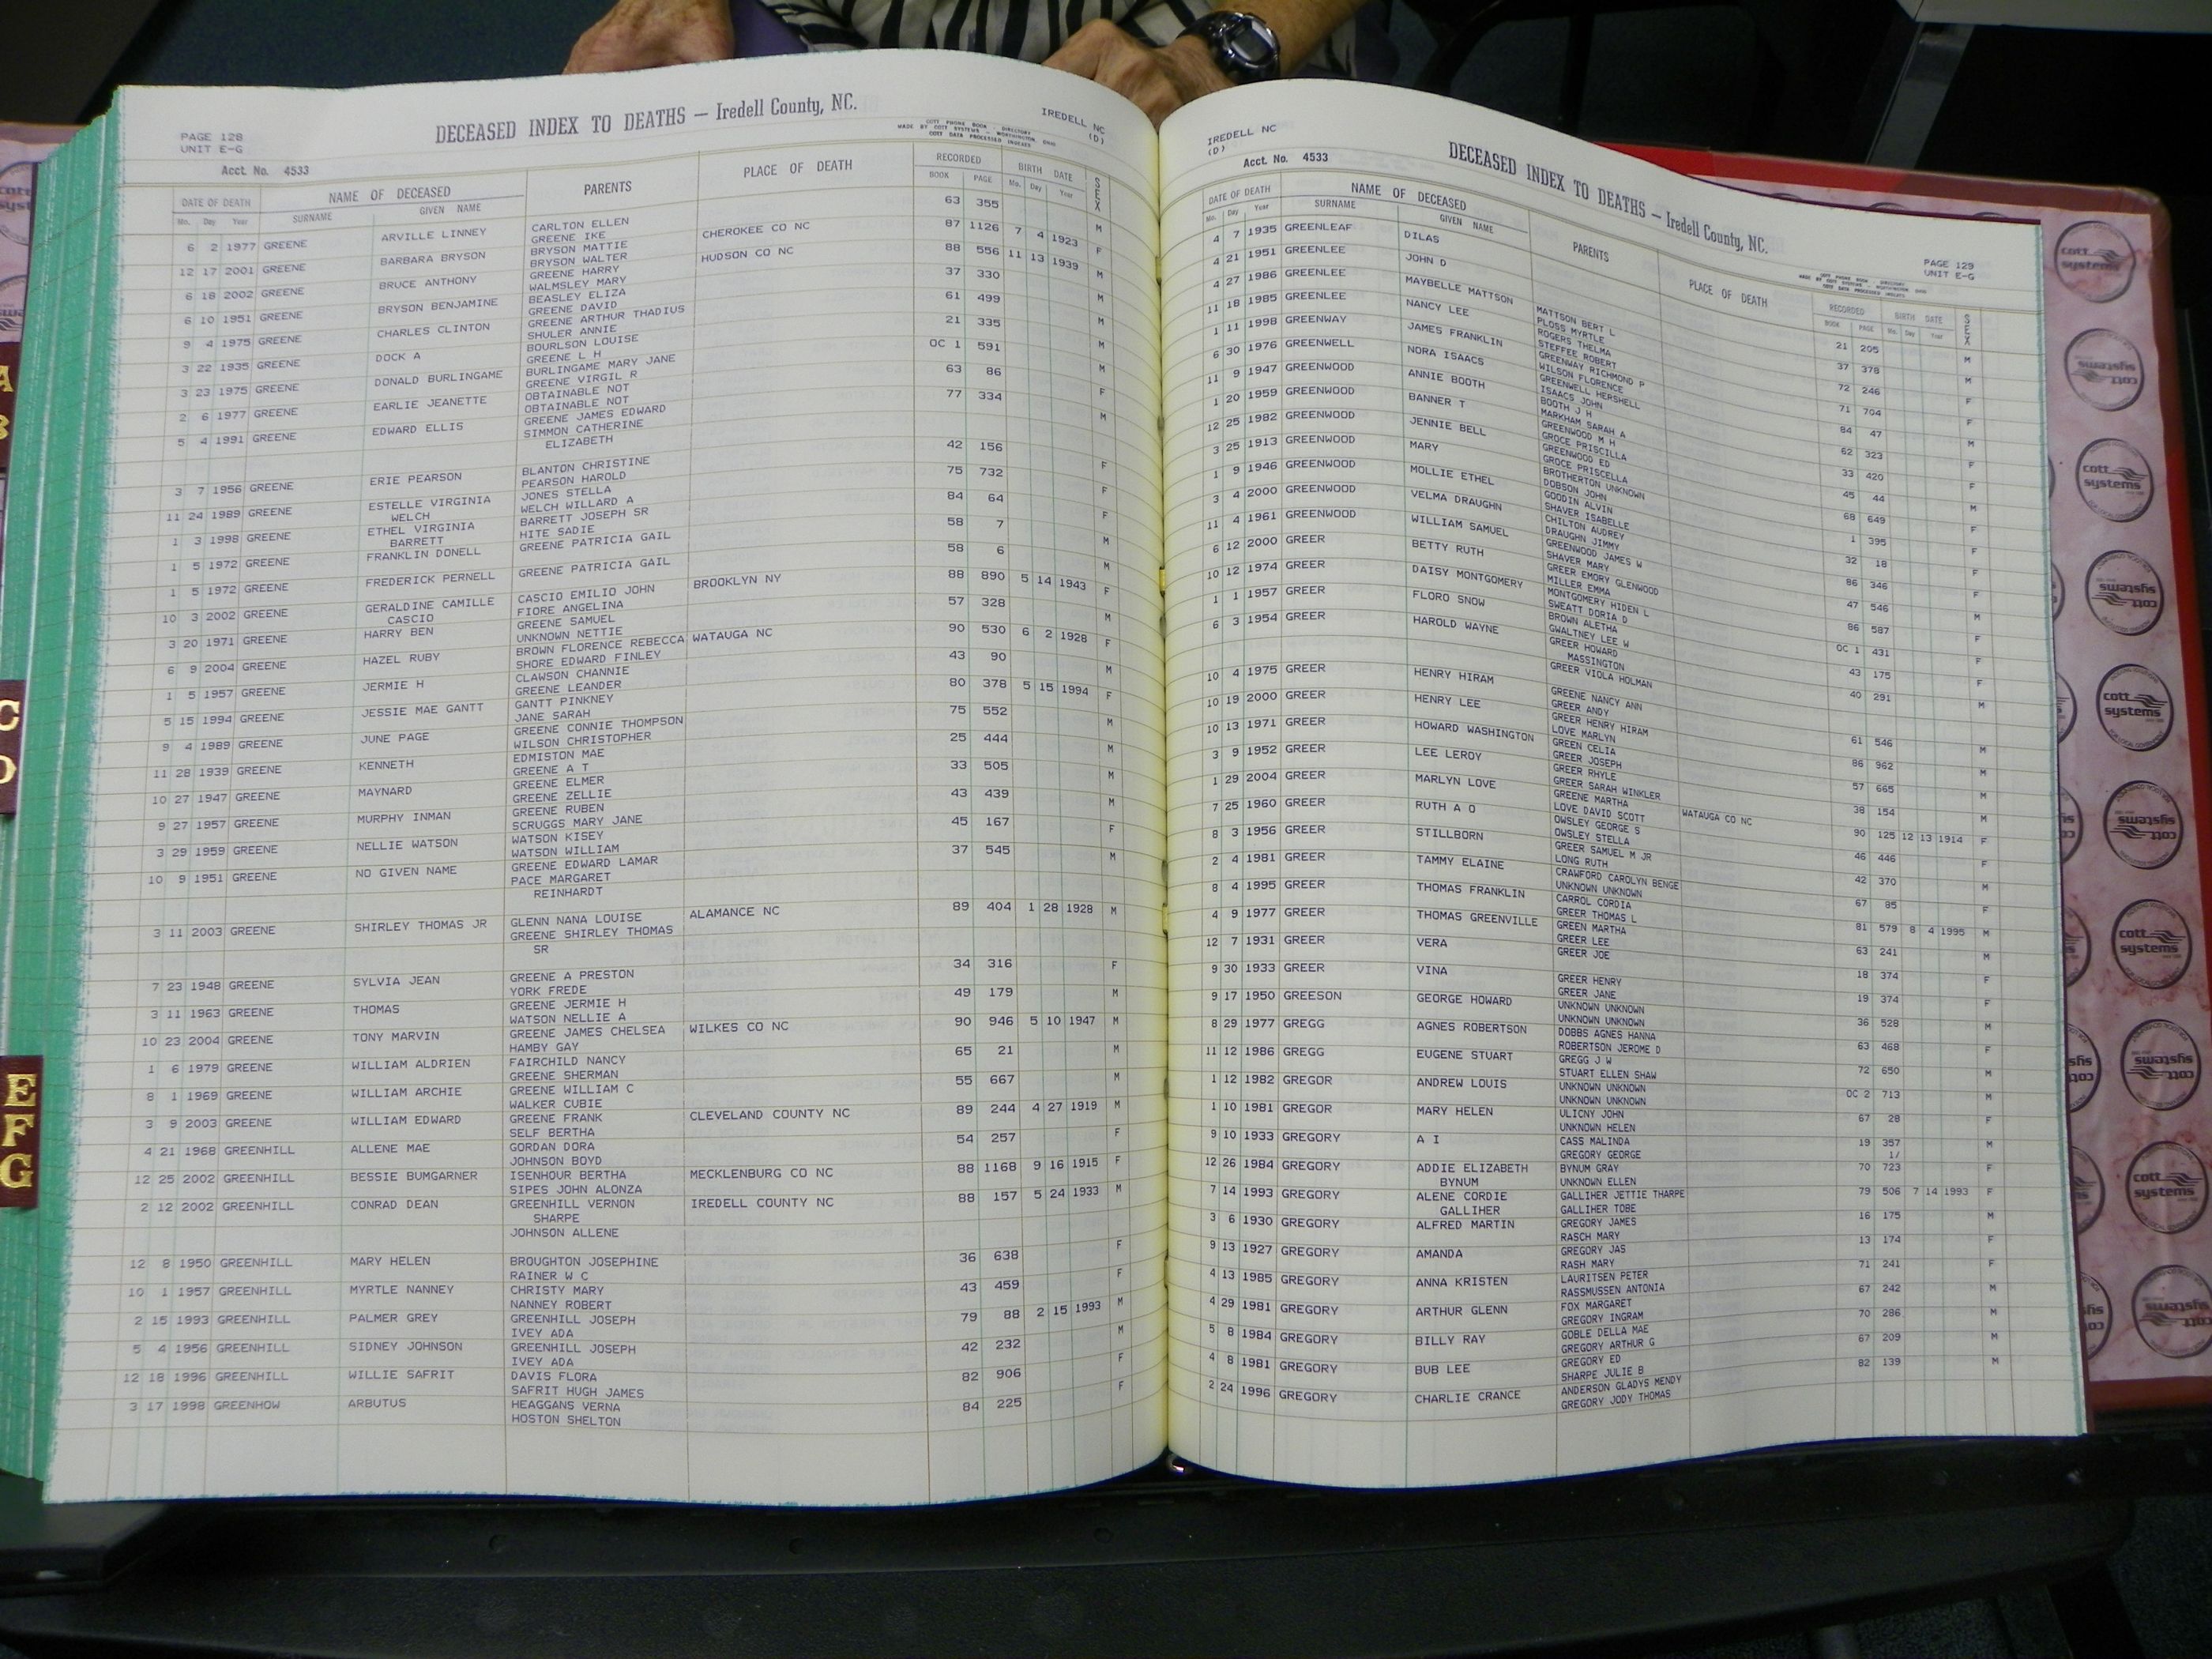 PAGE 128
UNIT E-G
DECEASED INDEX TO DEATHS — Iredell County, NC.
COTT PHONE BOOK DIRECTORY
MADE BY COTT SYSTEMS - WORTHINGTON, OHIO
COTT DATA PROCESSED INDEXES
IREDELL NC
(D)
Acct. No. 4533
DATE OF DEATH NAME OF DECEASED PARENTS PLACE OF DEATH RECORDED BIRTH DATE SEX
Mo. Day Year SURNAME GIVEN NAME BOOK PAGE Mo. Day Year
6 2 1977 GREENE ARVILLE LINNEY CARLTON ELLEN 63 355 M
GREENE IKE
12 17 2001 GREENE BARBARA BRYSON BRYSON MATTIE CHEROKEE CO NC 87 1126 7 4 1923 F
BRYSON WALTER
6 18 2002 GREENE BRUCE ANTHONY GREENE HARRY HUDSON CO NC 88 556 11 13 1939 M
WALMSLEY MARY
6 10 1951 GREENE BRYSON BENJAMINE BEASLEY ELIZA 37 330 M
GREENE DAVID
9 4 1975 GREENE CHARLES CLINTON GREENE ARTHUR THADIUS 61 499 M
SHULER ANNIE
3 22 1935 GREENE DOCK A BOURLSON LOUISE 21 335 M
GREENE L H
3 23 1975 GREENE DONALD BURLINGAME BURLINGAME MARY JANE OC 1 591 M
GREENE VIRGIL R
2 6 1977 GREENE EARLIE JEANETTE OBTAINABLE NOT 63 86 F
OBTAINABLE NOT
5 4 1991 GREENE EDWARD ELLIS GREENE JAMES EDWARD 77 334 M
SIMMON CATHERINE
ELIZABETH
3 7 1956 GREENE ERIE PEARSON BLANTON CHRISTINE 42 156 F
PEARSON HAROLD
11 24 1989 GREENE ESTELLE VIRGINIA JONES STELLA 75 732 F
WELCH WELCH WILLARD A
1 3 1998 GREENE ETHEL VIRGINIA BARRETT JOSEPH SR 84 64 F
BARRETT HITE SADIE
1 5 1972 GREENE FRANKLIN DONELL GREENE PATRICIA GAIL 58 7 M
1 5 1972 GREENE FREDERICK PERNELL GREENE PATRICIA GAIL 58 6 M
10 3 2002 GREENE GERALDINE CAMILLE CASCIO EMILIO JOHN BROOKLYN NY 88 890 5 14 1943 F
CASCIO FIORE ANGELINA
3 20 1971 GREENE HARRY BEN GREENE SAMUEL 57 328 M
UNKNOWN NETTIE
6 9 2004 GREENE HAZEL RUBY BROWN FLORENCE REBECCA WATAUGA NC 90 530 6 2 1928 F
SHORE EDWARD FINLEY
1 5 1957 GREENE JERMIE H CLAWSON CHANNIE 43 90 M
GREENE LEANDER
5 15 1994 GREENE JESSIE MAE GANTT GANTT PINKNEY 80 378 5 15 1994 F
JANE SARAH
9 4 1989 GREENE JUNE PAGE GREENE CONNIE THOMPSON 75 552 M
WILSON CHRISTOPHER
11 28 1939 GREENE KENNETH EDMISTON MAE 25 444 M
GREENE A T
10 27 1947 GREENE MAYNARD GREENE ELMER 33 505 M
GREENE ZELLIE
9 27 1957 GREENE MURPHY INMAN GREENE RUBEN 43 439 M
SCRUGGS MARY JANE
3 29 1959 GREENE NELLIE WATSON WATSON KISEY 45 167 F
WATSON WILLIAM
10 9 1951 GREENE NO GIVEN NAME GREENE EDWARD LAMAR 37 545 M
PACE MARGARET
REINHARDT
3 11 2003 GREENE SHIRLEY THOMAS JR GLENN NANA LOUISE ALAMANCE NC 89 404 1 28 1928 M
GREENE SHIRLEY THOMAS
SR
7 23 1948 GREENE SYLVIA JEAN GREENE A PRESTON 34 316 F
YORK FREDE
3 11 1963 GREENE THOMAS GREENE JERMIE H 49 179 M
WATSON NELLIE A
10 23 2004 GREENE TONY MARVIN GREENE JAMES CHELSEA WILKES CO NC 90 946 5 10 1947 M
HAMBY GAY
1 6 1979 GREENE WILLIAM ALDRIEN FAIRCHILD NANCY 65 21 M
GREENE SHERMAN
8 1 1969 GREENE WILLIAM ARCHIE GREENE WILLIAM C 55 667 M
WALKER CUBIE
3 9 2003 GREENE WILLIAM EDWARD GREENE FRANK CLEVELAND COUNTY NC 89 244 4 27 1919 M
SELF BERTHA
4 21 1968 GREENHILL ALLENE MAE GORDAN DORA 54 257 F
JOHNSON BOYD
12 25 2002 GREENHILL BESSIE BUMGARNER ISENHOUR BERTHA MECKLENBURG CO NC 88 1168 9 16 1915 F
SIPES JOHN ALONZA
2 12 2002 GREENHILL CONRAD DEAN GREENHILL VERNON IREDELL COUNTY NC 88 157 5 24 1933 M
SHARPE
JOHNSON ALLENE
12 8 1950 GREENHILL MARY HELEN BROUGHTON JOSEPHINE 36 638 F
RAINER W C
10 1 1957 GREENHILL MYRTLE NANNEY CHRISTY MARY 43 459 F
NANNEY ROBERT
2 15 1993 GREENHILL PALMER GREY GREENHILL JOSEPH 79 88 2 15 1993 M
IVEY ADA
5 4 1956 GREENHILL SIDNEY JOHNSON GREENHILL JOSEPH 42 232 M
IVEY ADA
12 18 1996 GREENHILL WILLIE SAFRIT DAVIS FLORA 82 906 F
SAFRIT HUGH JAMES
3 17 1998 GREENHOW ARBUTUS HEAGGANS VERNA 84 225 F
HOSTON SHELTON
IREDELL NC
(D)
Acct. No. 4533
DECEASED INDEX TO DEATHS — Iredell County, NC.
PAGE 129
UNIT E-G
COTT PHONE BOOK DIRECTORY
MADE BY COTT SYSTEMS - WORTHINGTON OHIO
COTT DATA PROCESSED INDEXES
DATE OF DEATH NAME OF DECEASED PARENTS PLACE OF DEATH RECORDED BIRTH DATE SEX
Mo. Day Year SURNAME GIVEN NAME BOOK PAGE Mo. Day Year
4 7 1935 GREENLEAF DILAS 21 205 M
4 21 1951 GREENLEE JOHN D 37 378 M
4 27 1986 GREENLEE MAYBELLE MATTSON MATTSON BERT L 72 246 F
PLOSS MYRTLE
11 18 1985 GREENLEE NANCY LEE ROGERS THELMA 71 704 F
STEFFEE ROBERT
1 11 1998 GREENWAY JAMES FRANKLIN GREENWAY RICHMOND P 84 47 M
WILSON FLORENCE
6 30 1976 GREENWELL NORA ISAACS GREENWELL HERSHELL 62 323 F
ISAACS JOHN
11 9 1947 GREENWOOD ANNIE BOOTH BOOTH J H 33 420 F
MARKHAM SARAH A
1 20 1959 GREENWOOD BANNER T GREENWOOD M H 45 44 M
GROCE PRISCILLA
12 25 1982 GREENWOOD JENNIE BELL GREENWOOD ED 68 649 F
GROCE PRISCELLA
3 25 1913 GREENWOOD MARY BROTHERTON UNKNOWN 1 395 F
DOBSON JOHN
1 9 1946 GREENWOOD MOLLIE ETHEL GOODIN ALVIN 32 18 F
SHAVER ISABELLE
3 4 2000 GREENWOOD VELMA DRAUGHN CHILTON AUDREY 86 346 F
DRAUGHN JIMMY
11 4 1961 GREENWOOD WILLIAM SAMUEL GREENWOOD JAMES W 47 546 M
SHAVER MARY
6 12 2000 GREER BETTY RUTH GREER EMORY GLENWOOD 86 587 F
MILLER EMMA
10 12 1974 GREER DAISY MONTGOMERY MONTGOMERY HIDEN L OC 1 431 F
SWEATT DORIA D
1 1 1957 GREER FLORO SNOW BROWN ALETHA 43 175 F
GWALTNEY LEE W
6 3 1954 GREER HAROLD WAYNE GREER HOWARD 40 291 M
MASSINGTON
GREER VIOLA HOLMAN
10 4 1975 GREER HENRY HIRAM GREENE NANCY ANN 61 546 M
GREER ANDY
10 19 2000 GREER HENRY LEE GREER HENRY HIRAM 86 962 M
LOVE MARLYN
10 13 1971 GREER HOWARD WASHINGTON GREEN CELIA 57 665 M
GREER JOSEPH
3 9 1952 GREER LEE LEROY GREER RHYLE 38 154 M
GREER SARAH WINKLER
1 29 2004 GREER MARLYN LOVE GREENE MARTHA WATAUGA CO NC 90 125 12 13 1914 F
LOVE DAVID SCOTT
7 25 1960 GREER RUTH A O OWSLEY GEORGE S 46 446 F
OWSLEY STELLA
8 3 1956 GREER STILLBORN GREER SAMUEL M JR 42 370 M
LONG RUTH
2 4 1981 GREER TAMMY ELAINE CRAWFORD CAROLYN BENGE 67 85 F
UNKNOWN UNKNOWN
8 4 1995 GREER THOMAS FRANKLIN CARROL CORDIA 81 579 8 4 1995 M
GREER THOMAS L
4 9 1977 GREER THOMAS GREENVILLE GREEN MARTHA 63 241 M
GREER LEE
12 7 1931 GREER VERA GREER JOE 18 374 F
9 30 1933 GREER VINA GREER HENRY 19 374 F
GREER JANE
9 17 1950 GREESON GEORGE HOWARD UNKNOWN UNKNOWN 36 528 M
UNKNOWN UNKNOWN
8 29 1977 GREGG AGNES ROBERTSON DOBBS AGNES HANNA 63 468 F
ROBERTSON JEROME D
11 12 1986 GREGG EUGENE STUART GREGG J W 72 650 M
STUART ELLEN SHAW
1 12 1982 GREGOR ANDREW LOUIS UNKNOWN UNKNOWN OC 2 713 M
UNKNOWN UNKNOWN
1 10 1981 GREGOR MARY HELEN ULICNY JOHN 67 28 F
UNKNOWN HELEN
9 10 1933 GREGORY A I CASS MALINDA 19 357 M
GREGORY GEORGE 1/
12 26 1984 GREGORY ADDIE ELIZABETH BYNUM GRAY 70 723 F
BYNUM UNKNOWN ELLEN
7 14 1993 GREGORY ALENE CORDIE GALLIHER JETTIE THARPE 79 506 7 14 1993 F
GALLIHER GALLIHER TOBE
3 6 1930 GREGORY ALFRED MARTIN GREGORY JAMES 16 175 M
RASCH MARY
9 13 1927 GREGORY AMANDA GREGORY JAS 13 174 F
RASH MARY
4 13 1985 GREGORY ANNA KRISTEN LAURITSEN PETER 71 241 F
RASSMUSSEN ANTONIA
4 29 1981 GREGORY ARTHUR GLENN FOX MARGARET 67 242 M
GREGORY INGRAM
5 8 1984 GREGORY BILLY RAY GOBLE DELLA MAE 70 286 M
GREGORY ARTHUR G
4 8 1981 GREGORY BUB LEE GREGORY ED 67 209 M
SHARPE JULIE B
2 24 1996 GREGORY CHARLIE CRANCE ANDERSON GLADYS MENDY 82 139 M
GREGORY JODY THOMAS
A
C
D
E
F
G
cott
systems